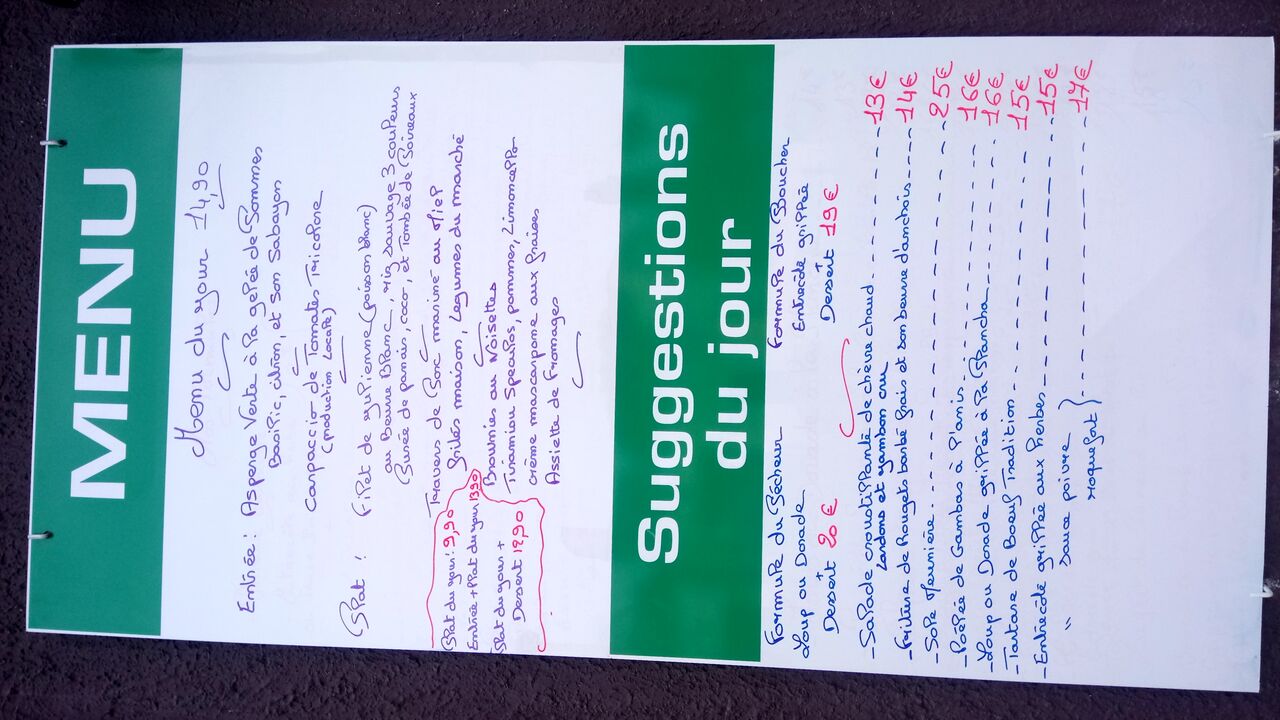 MENU
Menu du jour 14,90
Entrée: Asperge Verte à la gelée de Pommes
Basilic, citron, et son Sabayon
Carpaccio de Tomates Tricolore
(production Locale)
Plat: Filet de Julienne (poisson blanc)
au Beurre Blanc, riz sauvage 3 couleurs
Purée de panais, coco, et Tombée de Poireaux
Travers de Porc mariné au miel
Frites maison, Légumes du marché
Brownies au Noisettes
Tiramisu Speculos, pommes, Limoncello
crème mascarpone aux fraises
Assiette de Fromages
Plat du jour: 9,90
Entrée + Plat du jour 13,90
Plat du jour +
Dessert 12,90
Suggestions
du jour
Formule du Pêcheur
Loup ou Dorade
Dessert 20€
Formule du Boucher
Entrecôte grillée
Dessert 19€
- Salade croustillante de chèvre chaud 13€
Lardons et jambon cru
- Friture de Rougets barbé frais et son beurre d'anchois 14€
- Sole Meunière 25€
- Poêlée de Gambas à l'anis 16€
- Loup ou Dorade grillée à la Plancha 16€
- Tartare de Boeuf Tradition 15€
- Entrecôte grillée aux herbes 15€
" Sauce poivre
roquefort } 17€